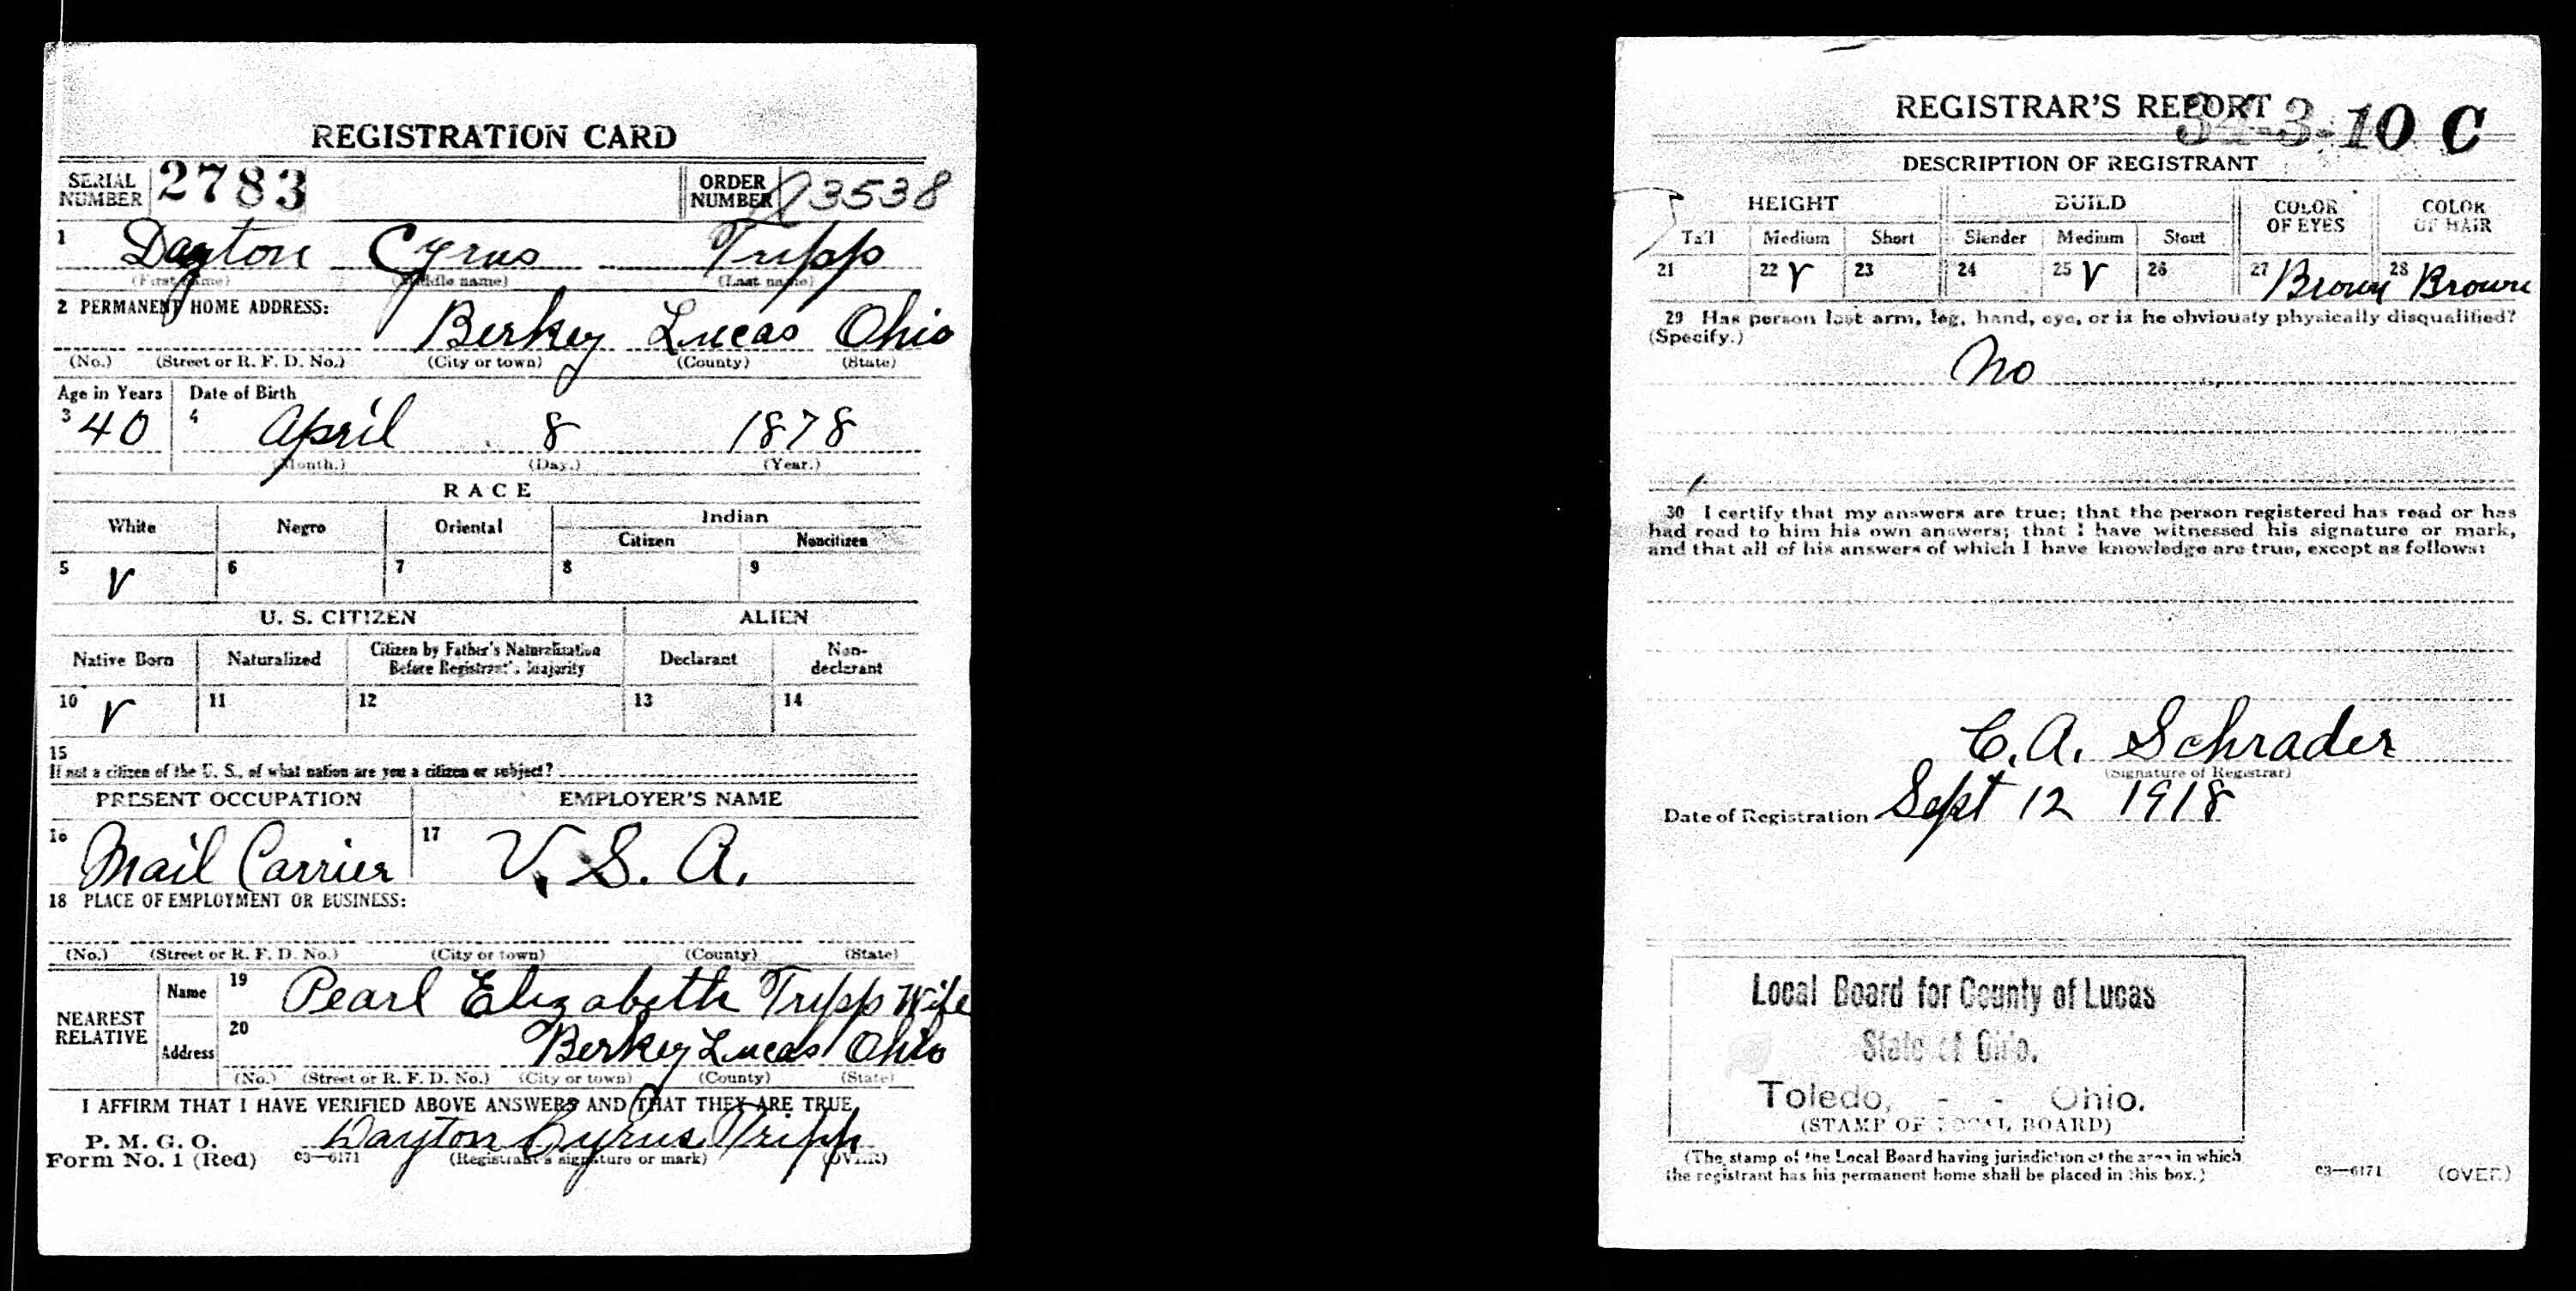 REGISTRATION CARD
SERIAL NUMBER 2783 ORDER NUMBER A3538
1 Dayton Cyrus Tripp
(First name) (Middle name) (Last name)
2 PERMANENT HOME ADDRESS:
Berkey Lucas Ohio
(No.) (Street or R. F. D. No.) (City or town) (County) (State)
Age in Years Date of Birth
3 40 4 April 8 1878
(Month.) (Day.) (Year.)
RACE
White Negro Oriental Indian
Citizen Noncitizen
5 V 6 7 8 9
U. S. CITIZEN ALIEN
Native Born Naturalized Citizen by Father's Naturalization Before Registrant's Majority Declarant Non-declarant
10 V 11 12 13 14
15
If not a citizen of the U. S., of what nation are you a citizen or subject?
PRESENT OCCUPATION EMPLOYER'S NAME
16 Mail Carrier 17 U. S. A.
18 PLACE OF EMPLOYMENT OR BUSINESS:
(No.) (Street or R. F. D. No.) (City or town) (County) (State)
NEAREST RELATIVE Name 19 Pearl Elizabeth Tripp Wife
Address 20 Berkey Lucas Ohio
(No.) (Street or R. F. D. No.) (City or town) (County) (State)
I AFFIRM THAT I HAVE VERIFIED ABOVE ANSWERS AND THAT THEY ARE TRUE
P. M. G. O.
Form No. 1 (Red) 03—6171 Dayton Cyrus Tripp
(Registrant's signature or mark) (OVER)
REGISTRAR'S REPORT
34-3-10 C
DESCRIPTION OF REGISTRANT
HEIGHT BUILD COLOR OF EYES COLOR OF HAIR
Tall Medium Short Slender Medium Stout
21 22 V 23 24 25 V 26 27 Brown 28 Brown
29 Has person lost arm, leg, hand, eye, or is he obviously physically disqualified?
(Specify.)
No
30 I certify that my answers are true; that the person registered has read or has
had read to him his own answers; that I have witnessed his signature or mark,
and that all of his answers of which I have knowledge are true, except as follows:
C. A. Schrader
(Signature of Registrar)
Date of Registration Sept 12 1918
Local Board for County of Lucas
State of Ohio.
Toledo, - - Ohio.
(STAMP OF LOCAL BOARD)
(The stamp of the Local Board having jurisdiction of the area in which
the registrant has his permanent home shall be placed in this box.)
03—6171 (OVER)